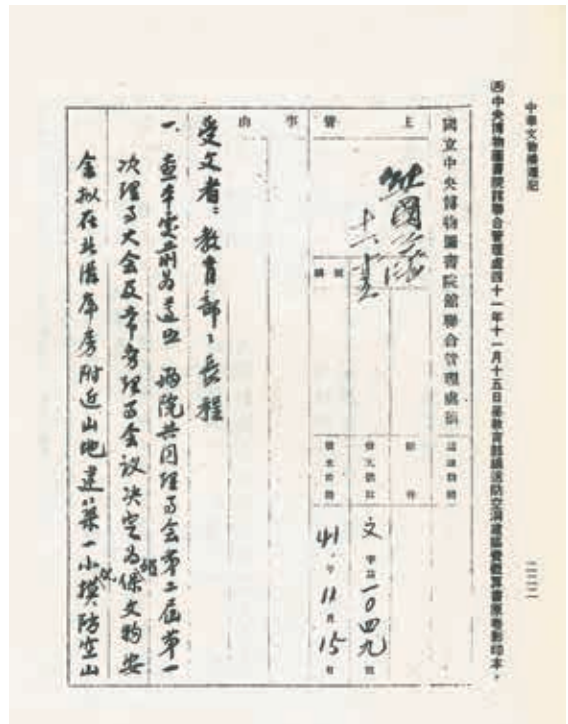 中華文物播遷記
㈣中央博物圖書院館聯合管理處四十一年十一月十五日呈教育部編送防空洞建築費概算書原卷影印本。
國立中央博物圖書院館聯合管理處稿
主 管
事 由
附件
發文號數
文 字第一〇四九號
41年11月15日
受文者：教育部部長程
一、查本處前為遵照 兩院共同理事會第二屆第一
次理事大會及常務理事會議決定為保文物安
全擬在北溝庫房附近山地建築一小規模防空山